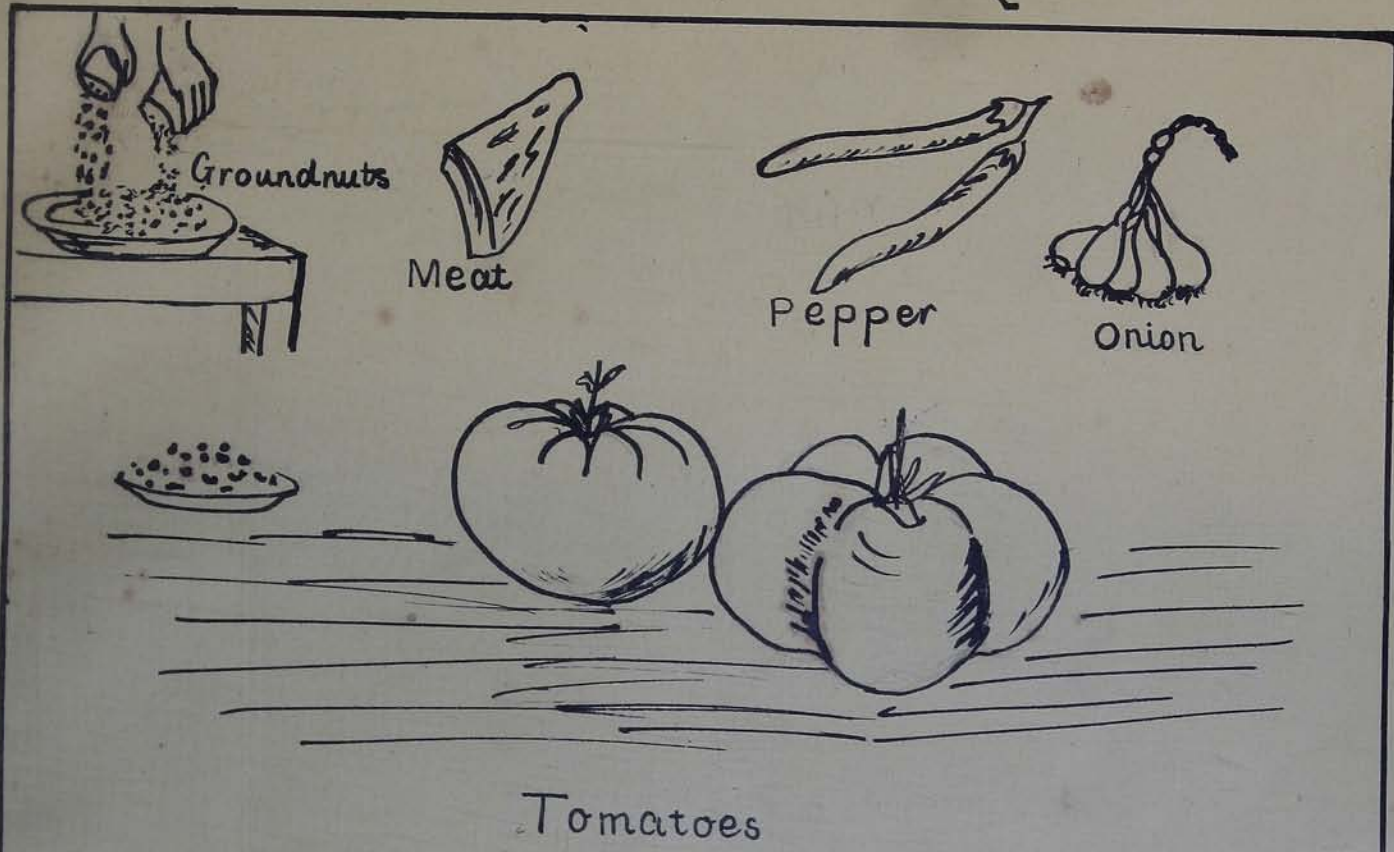 Groundnuts
Meat
Pepper
Onion
Tomatoes